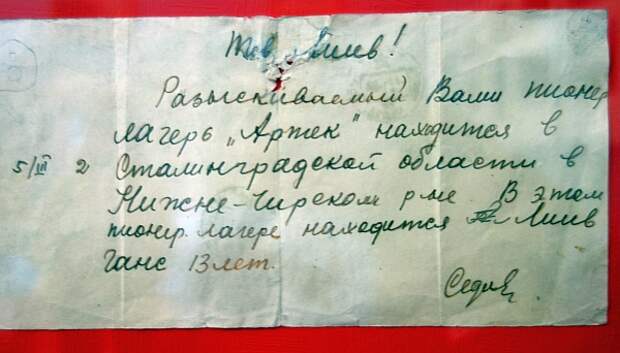 Тов Лиив!
Разыскиваемый Вами пионер
лагерь „Артек" находится в
5/III 2 Сталинградской области в
Нижне-Чирском р-не. В этом
пионер. лагере находится Лиив
Ганс 13 лет.